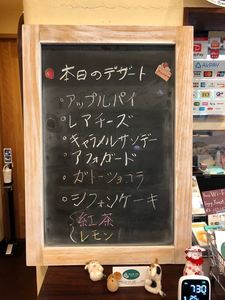 本日のデザート
・アップルパイ
・レアチーズ
・キャラメルサンデー
・アフォガード
・ガトーショコラ
・シフォンケーキ
紅茶
レモン
AirPAY
7:30